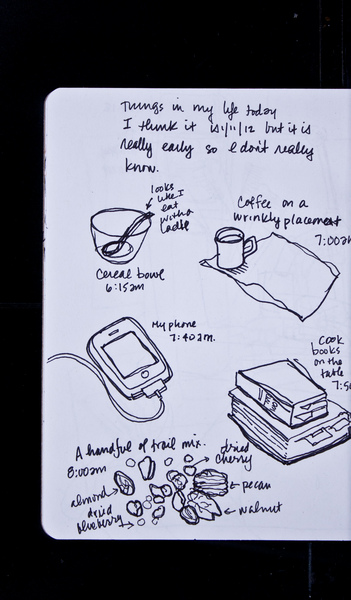 Things in my life today
I think it is 1/11/12 but it is
really early so I don't really
know.
looks
like I
eat
with a
Ladle
Cereal bowl
6:15am
Coffee on a
wrinkly placemat
7:00am
My phone
7:40am.
Cook
books
on the
table
7:5
A handful of trail mix.
8:00am
dried
cherry
pecan
walnut
almond
dried
blueberry